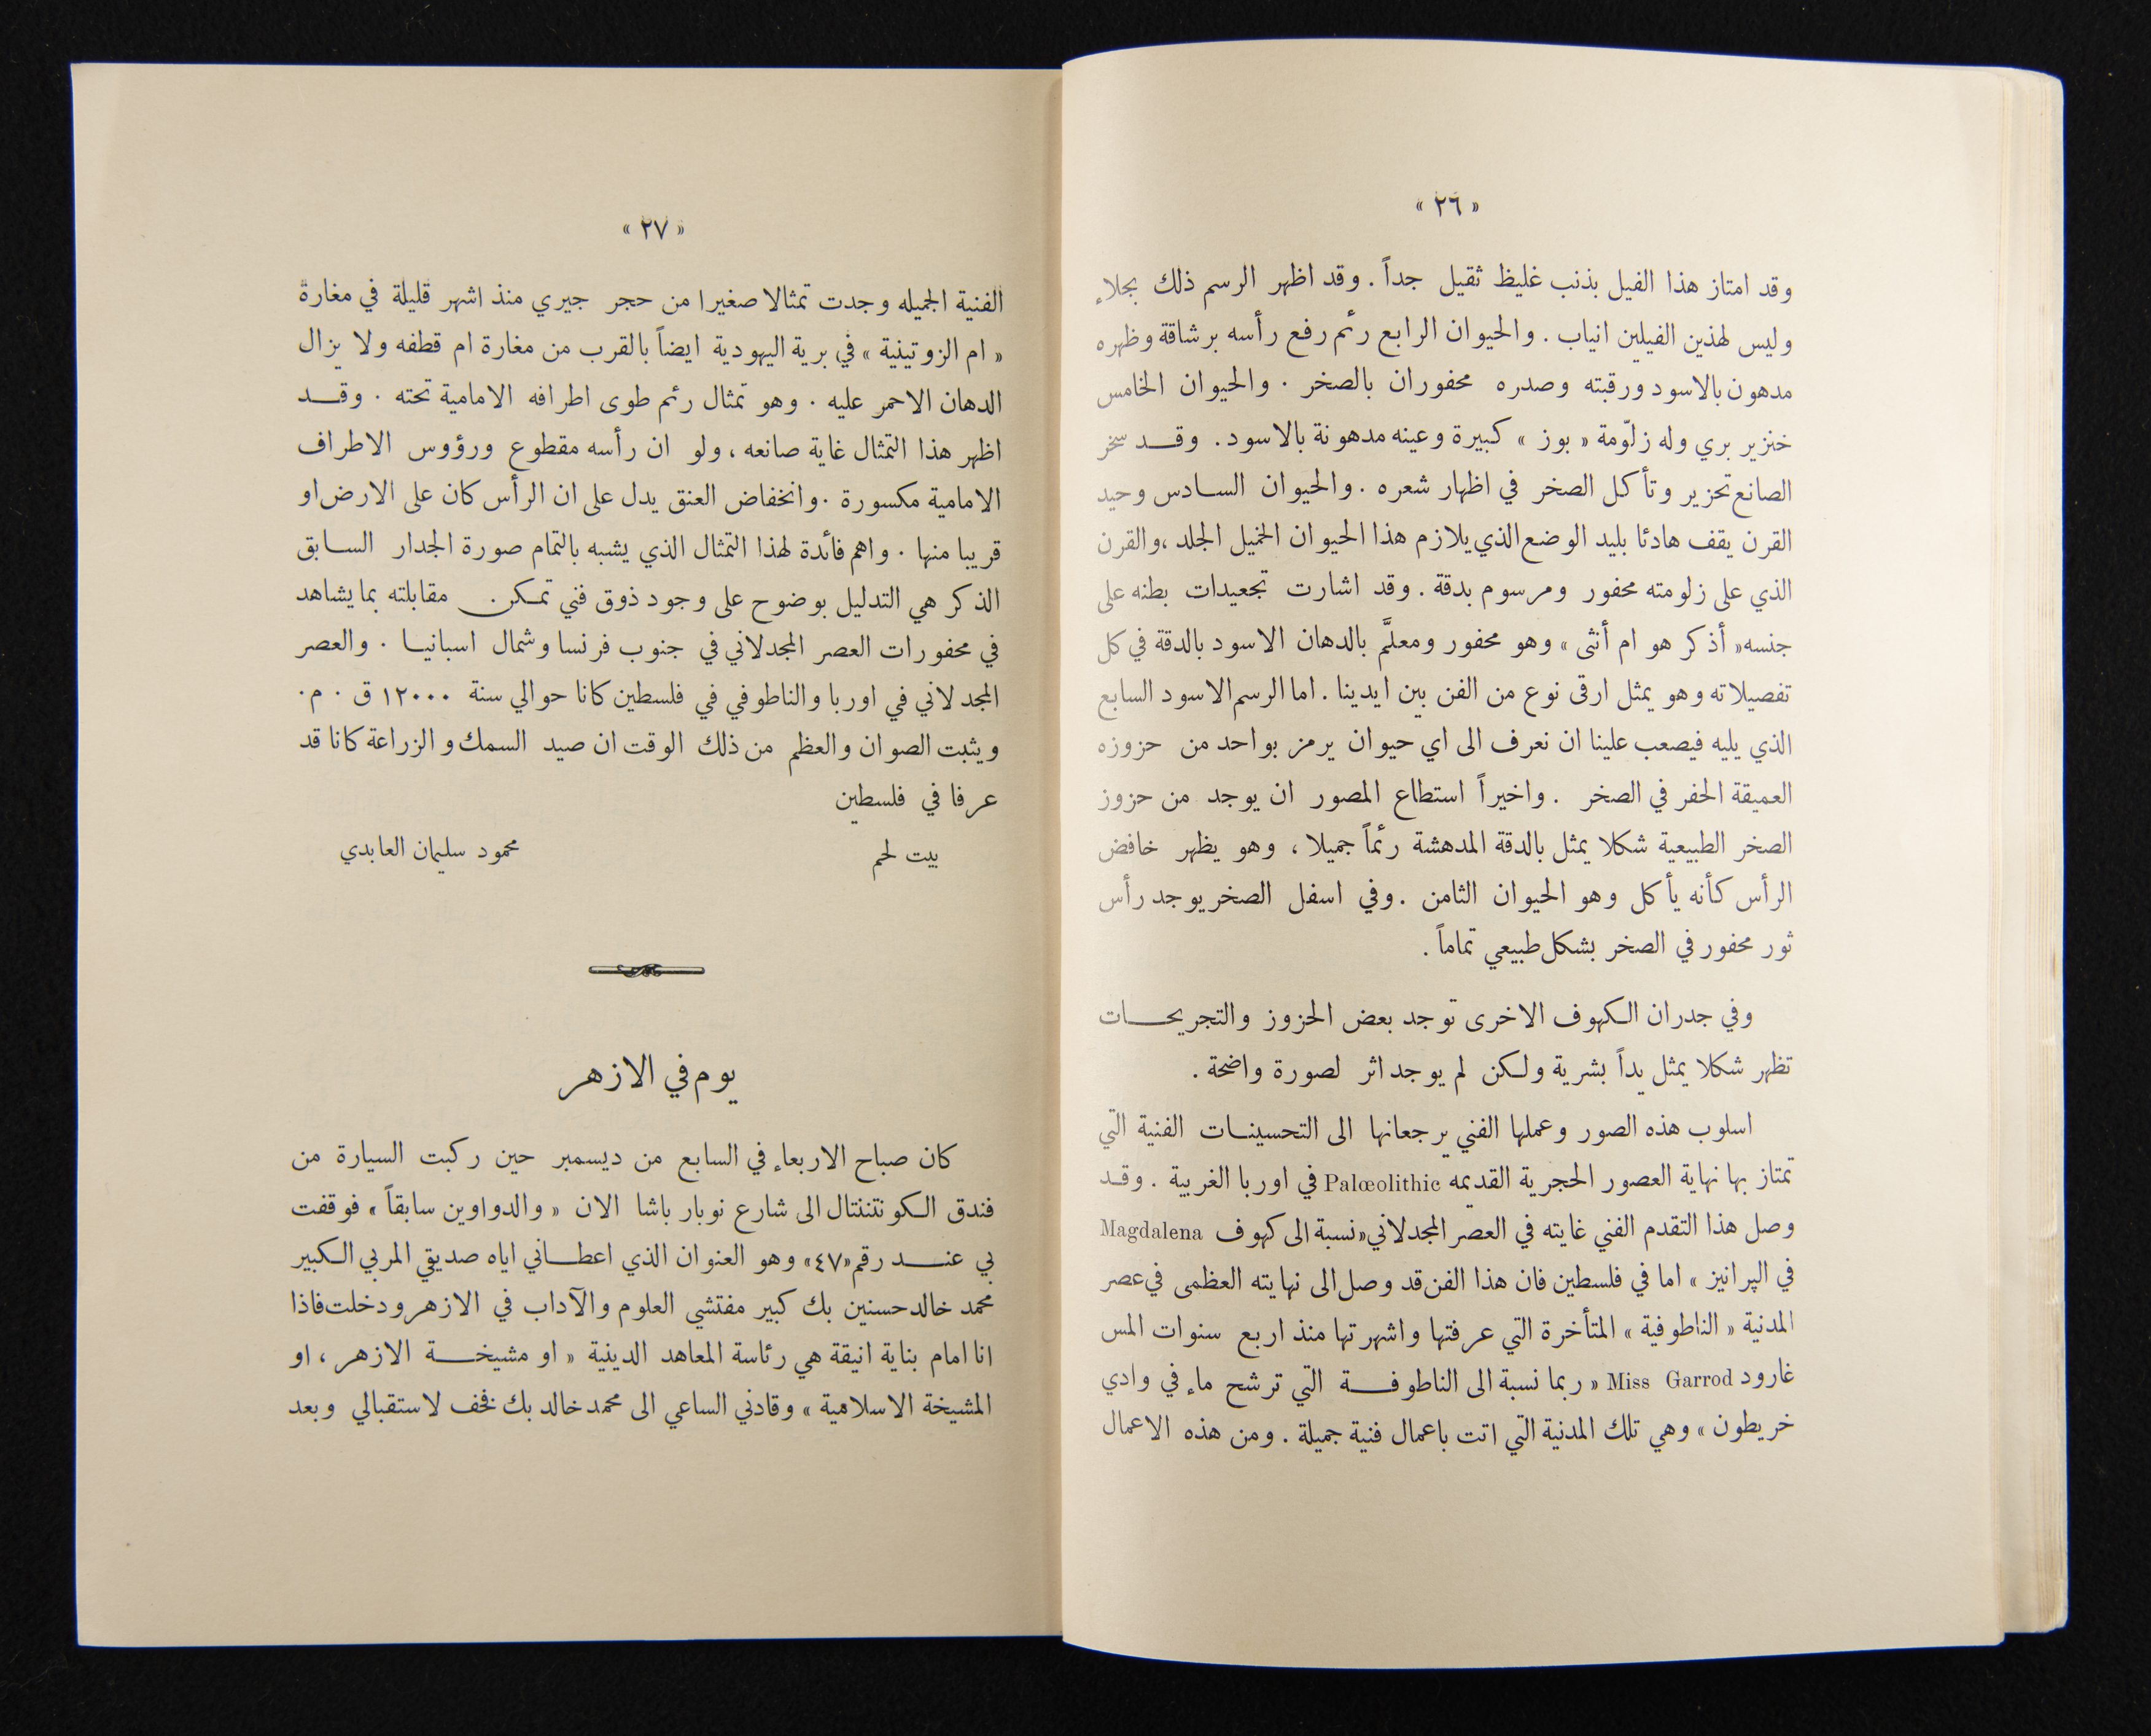 « ٢٦ »
وقد امتاز هذا الفيل بذنب غليظ ثقيل جداً . وقد اظهر الرسم ذلك بجلاء
وليس لهذين الفيلين انياب . والحيوان الرابع رئم رفع رأسه برشاقة وظهره
مدهون بالاسود ورقبته وصدره محفوران بالصخر . والحيوان الخامس
خنزير بري وله زلوّمة « بوز » كبيرة وعينه مدهونة بالاسود . وقـد سخر
الصانع تحزير وتأكل الصخر في اظهار شعره . والحيوان السـادس وحيد
القرن يقف هادئا بليد الوضع الذي يلازم هذا الحيوان الخميل الجلد ، والقرن
الذي على زلومته محفور ومرسوم بدقة . وقد اشارت تجعيدات بطنه على
جنسه « أذكر هو ام أنثى » وهو محفور ومعلَّم بالدهان الاسود بالدقة في كل
تفصيلاته وهو يمثل ارقى نوع من الفن بين ايدينا . اما الرسم الاسود السابع
الذي يليه فيصعب علينا ان نعرف الى اي حيوان يرمز بواحد من حزوزه
العميقة الحفر في الصخر . واخيراً استطاع المصور ان يوجد من حزوز
الصخر الطبيعية شكلا يمثل بالدقة المدهشة رئماً جميلا ، وهو يظهر خافض
الرأس كأنه يأكل وهو الحيوان الثامن . وفي اسفل الصخر يوجد رأس
ثور محفور في الصخر بشكل طبيعي تماماً .
وفي جدران الكهوف الاخرى توجد بعض الحزوز والتجريحـات
تظهر شكلا يمثل يداً بشرية ولكن لم يوجد اثر لصورة واضحة .
اسلوب هذه الصور وعملها الفني يرجعانها الى التحسينـات الفنية التي
تمتاز بها نهاية العصور الحجرية القديمه Palœolithic في اوربا الغربية . وقـد
وصل هذا التقدم الفني غايته في العصر المجدلاني « نسبة الى كهوف Magdalena
في الپرانيز » اما في فلسطين فان هذا الفن قد وصل الى نهايته العظمى في عصر
المدنية « الناطوفية » المتأخرة التي عرفتها واشهرتها منذ اربع سنوات المس
غارود Miss Garrod « ربما نسبة الى الناطوفـة التي ترشح ماء في وادي
خريطون » وهي تلك المدنية التي اتت باعمال فنية جميلة . ومن هذه الاعمال
« ٢٧ »
الفنية الجميله وجدت تمثالا صغيرا من حجر جيري منذ اشهر قليلة في مغارة
« ام الزوتينية » في برية اليهودية ايضاً بالقرب من مغارة ام قطفه ولا يزال
الدهان الاحمر عليه . وهو تمثال رئم طوى اطرافه الامامية تحته . وقـد
اظهر هذا التمثال غاية صانعه ، ولو ان رأسه مقطوع ورؤوس الاطراف
الامامية مكسورة . وانخفاض العنق يدل على ان الرأس كان على الارض او
قريبا منها . واهم فائدة لهذا التمثال الذي يشبه بالتمام صورة الجدار السـابق
الذكر هي التدليل بوضوح على وجود ذوق فني تمكن مقابلته بما يشاهد
في محفورات العصر المجدلاني في جنوب فرنسا وشمال اسبانيـا . والعصر
المجدلاني في اوربا والناطوفي في فلسطين كانا حوالي سنة ١٢٠٠٠ ق . م .
ويثبت الصوان والعظم من ذلك الوقت ان صيد السمك والزراعة كانا قد
عرفا في فلسطين
بيت لحم محمود سليمان العابدي
يوم في الازهر
كان صباح الاربعاء في السابع من ديسمبر حين ركبت السيارة من
فندق الكونتننتال الى شارع نوبار باشا الان « والدواوين سابقاً » فوقفت
بي عنـد رقم « ٤٧ » وهو العنوان الذي اعطـاني اياه صديقي المربي الكبير
محمد خالد حسنين بك كبير مفتشي العلوم والآداب في الازهر ودخلت فاذا
انا امام بناية انيقة هي رئاسة المعاهد الدينية « او مشيخـة الازهر ، او
المشيخة الاسلامية » وقادني الساعي الى محمد خالد بك فخف لاستقبالي وبعد